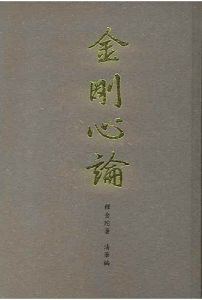 金剛心論
釋金陀著 淸華編